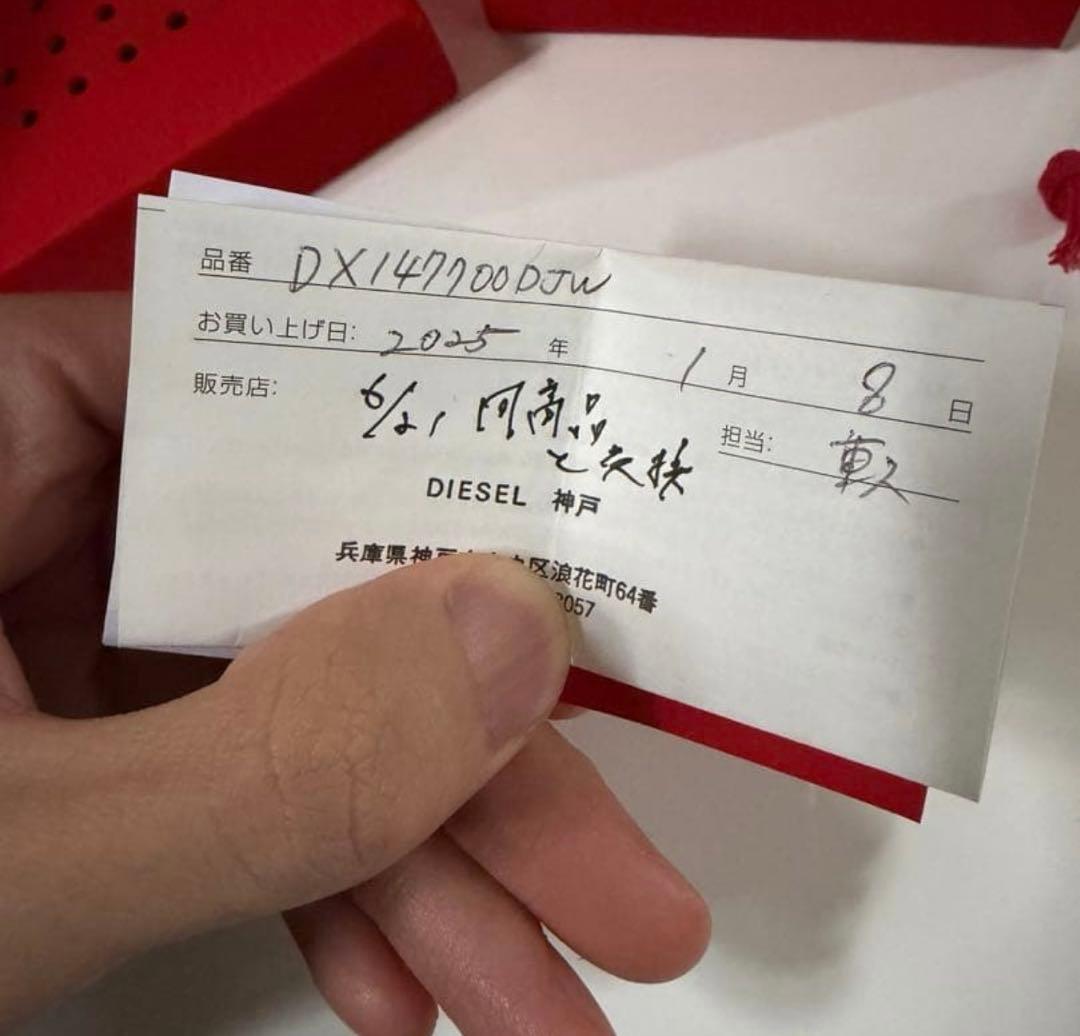 品番 DX147700DJW
お買い上げ日: 2025 年 1 月 8 日
販売店: 6/21 同商品
と交換
担当:
DIESEL 神戸
兵庫県神戸 区浪花町64番
3057